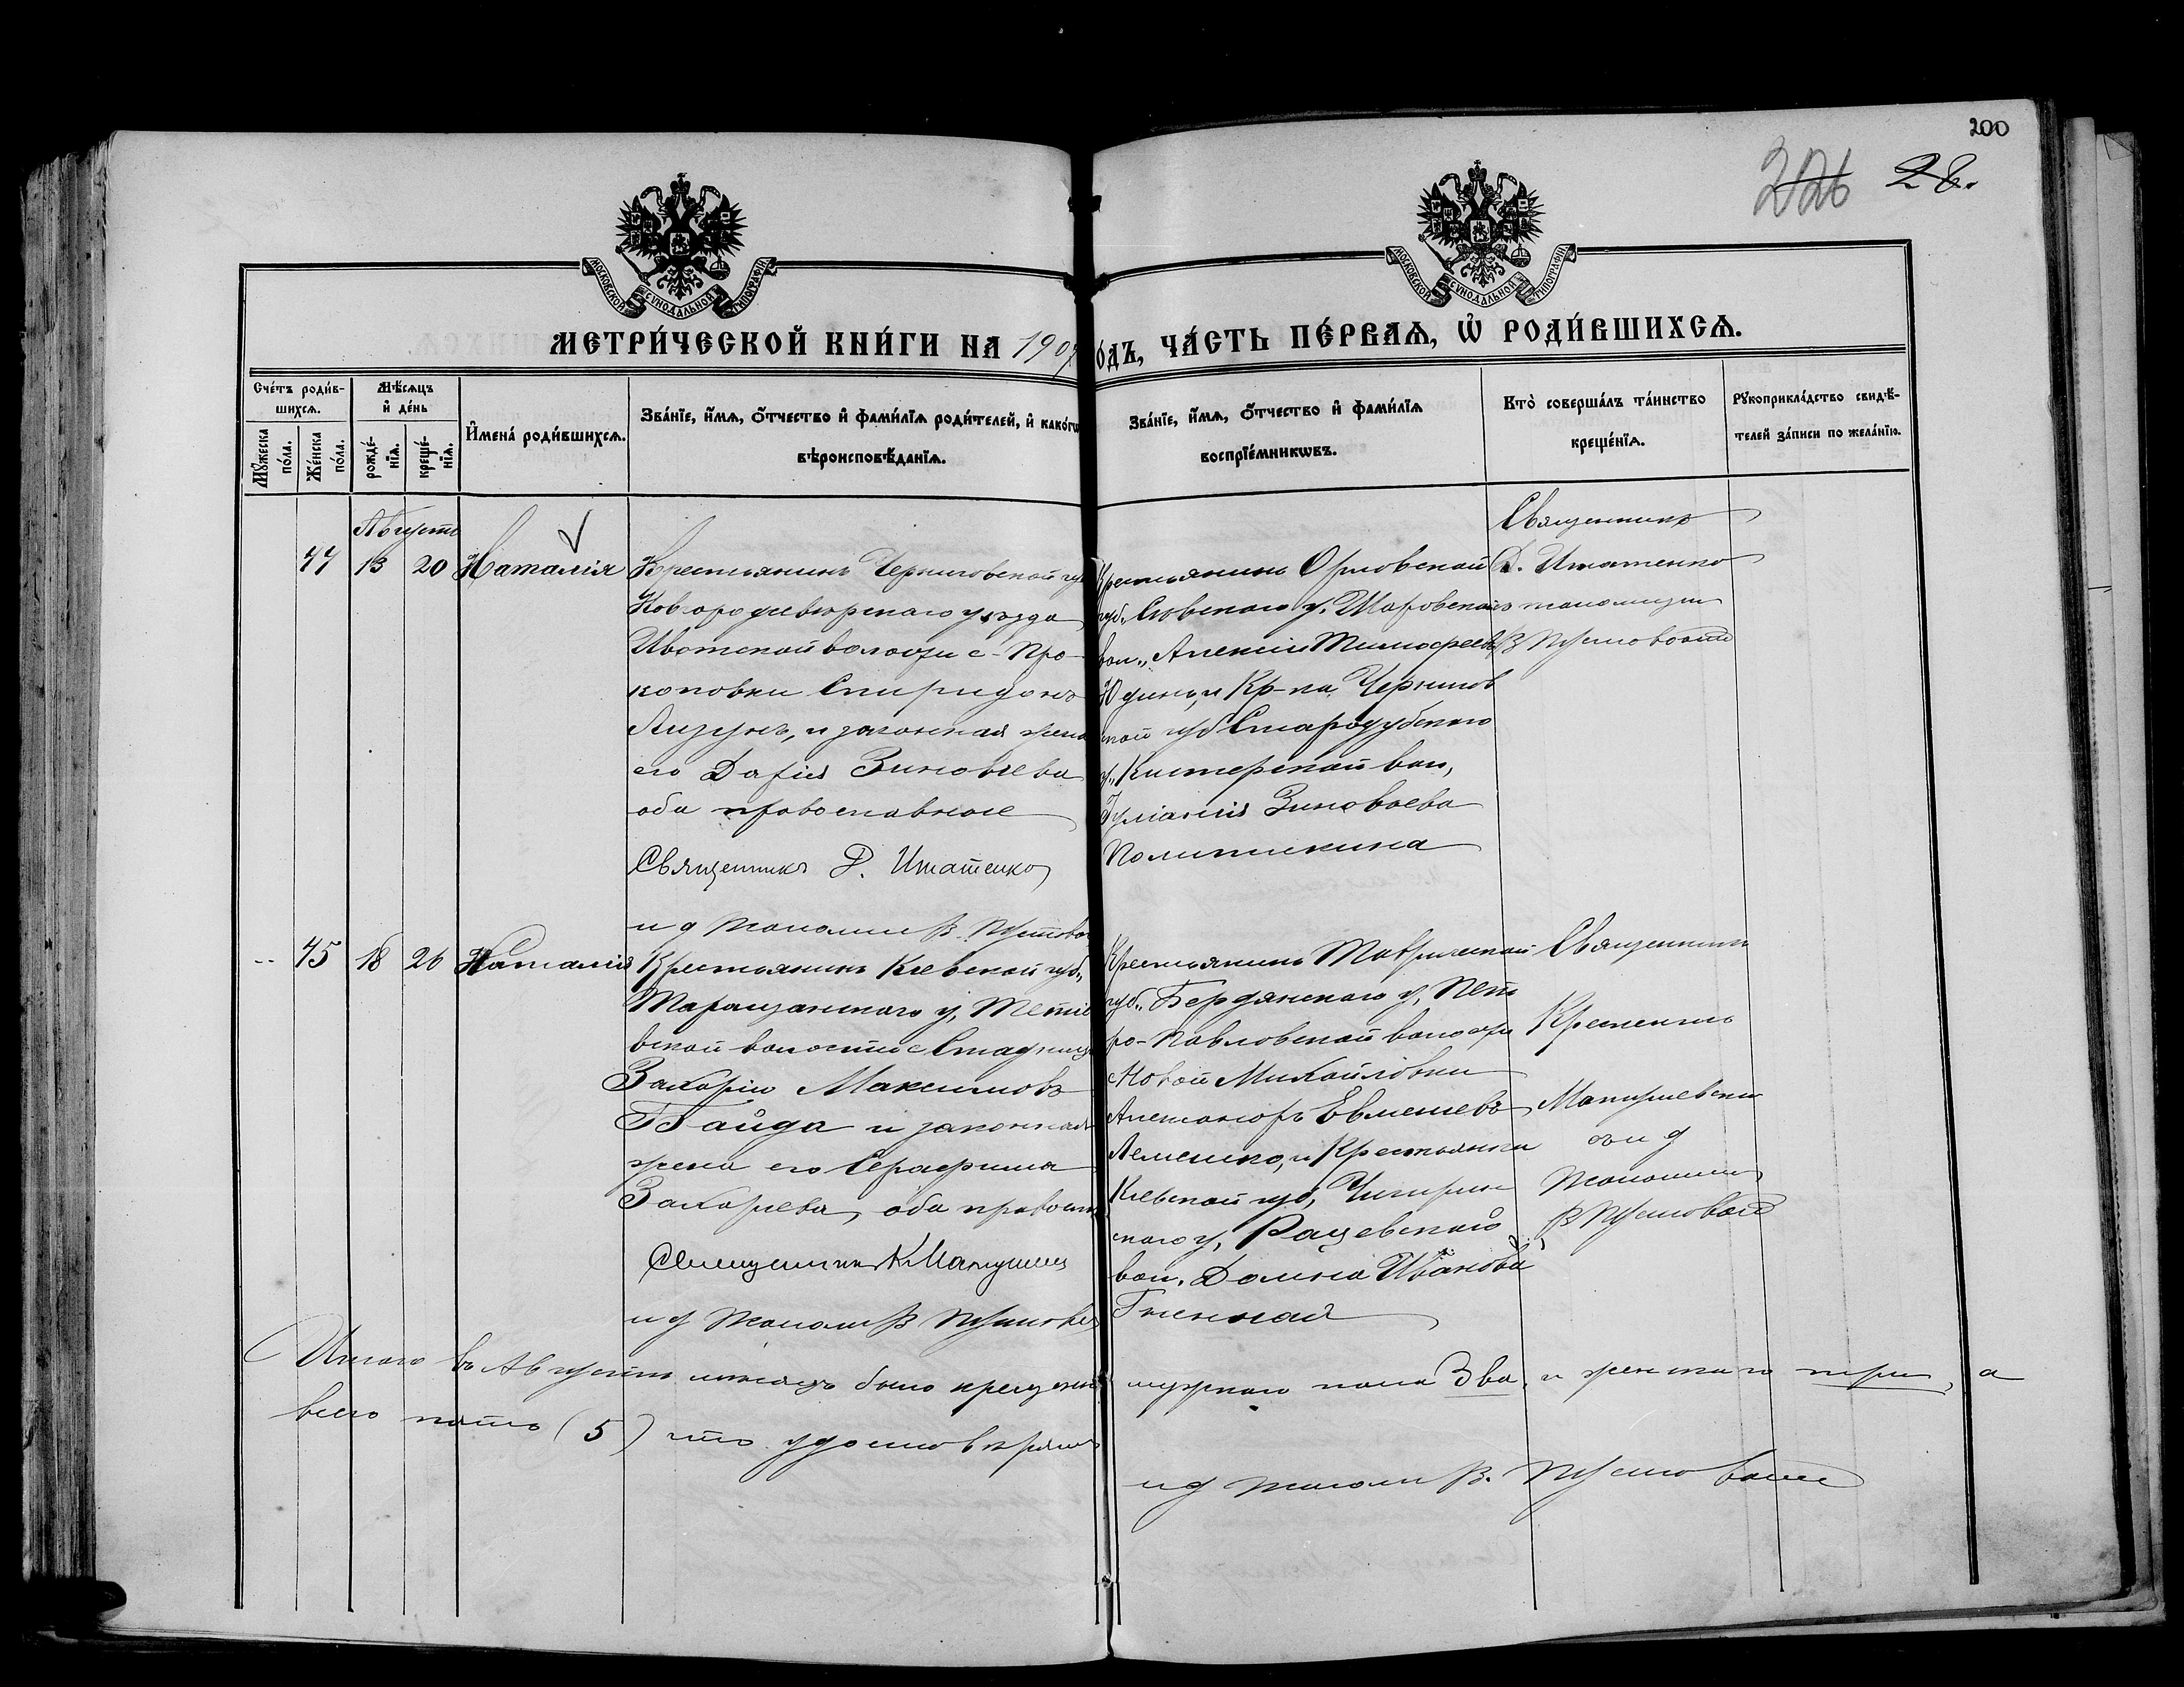 200
226 28.
МОСКОВСКОЙ СѴНОДАЛЬНОЙ ТИПОГРАФІИ
МОСКОВСКОЙ СѴНОДАЛЬНОЙ ТИПОГРАФІИ
МЕТРИ́ЧЕСКОЙ КНИ́ГИ НА 1907
о́дъ, ЧА́СТЬ ПЕ́РВАѦ, Ѡ҆ РОДИ́ВШИХСѦ.
Сче́тъ роди́в-
шихсѧ.
Мꙋ́жеска
по́ла.
Же́нска
по́ла.
Мѣ́сѧцъ
и҆ де́нь
рожде́-
нїѧ.
креще́-
нїѧ.
И҆мена̀ роди́вшихсѧ.
Зва́нїе, и҆́мѧ, ѻ҆́тчество и҆ фами́лїѧ роди́телей, и҆ како́гѡ
вѣроисповѣ́данїѧ.
Зва́нїе, и҆́мѧ, ѻ҆́тчество и҆ фами́лїѧ
воспрїе́мникѡвъ.
Кто̀ соверша́лъ та́инство
креще́нїѧ.
Рꙋкоприкла́дство свидѣ́-
телей за́писи по жела́нїю.
Августъ
44 13 20 Наталія
Крестьянинъ Черниговской гу
Новгородсеверскаго уѣзда
Ивотской волости с. Про-
коповки Спиридонъ
Лизунъ, и законная жена
его Дарія Зиновьева
оба православные
Священникъ Д. Игнатенко
и д псаломщ В. Пустово
Крестьянинъ Орловской
губ. Сѣвскаго у.
вол., Алексій Тимофеевъ
Юдинъ, и Кр-ка Чернигов
ской губ Стародубскаго
у. Кистерской вол,
Іуліанія Зиновьева
Священникъ
Д. Игнатенко
псаломщик
-- 45 18 26 Наталія
Крестьянинъ Кіевской губ.,
Таращанскаго у, Тетіе
вской волости с Стадницы
Захарій Максимовъ
Байда и законная
жена его Серафима
Захарьева, оба правосл
Священникъ К Мацуевич
и д Псаломщ В
Крестьянинъ Таврической
губ. Бердянскаго у, Пет
ро-Павловской волости
с Новой Михайловки
Александръ Евменіевъ
Лемешко, и Крестьянка
Кіевской губ, Чигирин
скаго у, Рацевской
вол. Домна Иванова
Священникъ
и д
Псаломщик
Итого въ Августѣ мѣсяцѣ было крещено
мужскаго пола два, и женскаго три, а
всего пять (5) что удостовѣряемъ
и д псаломщ В.